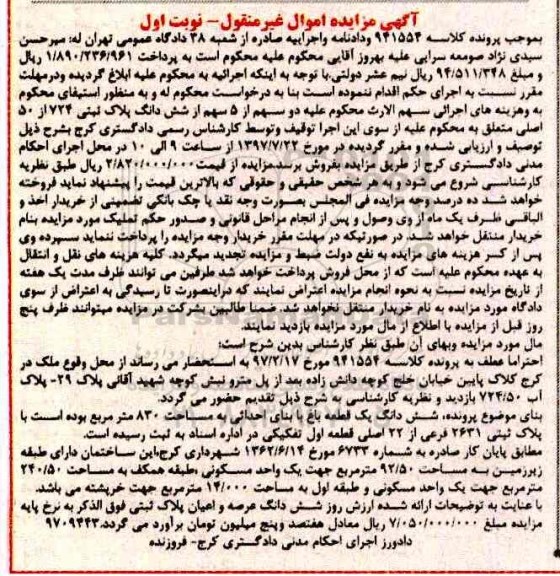 آگهی مزایده اموال غیرمنقول- نوبت اول
بموجب پرونده کلاسه ۹۴۱۵۵۴ ودادنامه واجراییه صادره از شعبه ۳۸ دادگاه عمومی تهران له: میرحسن
سیدی نژاد صومعه سرایی علیه بهروز آقایی محکوم علیه محکوم است به پرداخت ۱/۸۹۰/۲۳۶/۹۶۱ ریال
و مبلغ ۹۴/۵۱۱/۳۴۸ ریال نیم عشر دولتی.با توجه به اینکه اجرائیه به محکوم علیه ابلاغ گردیده ودرمهلت
مقرر نسبت به اجرای حکم اقدام ننموده است بنا به درخواست محکوم له و به منظور استیفای محکوم
به وهزینه های اجرائی سهم الارث محکوم علیه دو سهم از ۵ سهم از شش دانگ پلاک ثبتی ۷۲۴ از ۵۰
اصلی متعلق به محکوم علیه از سوی این اجرا توقیف وتوسط کارشناس رسمی دادگستری کرج بشرح ذیل
توصیف و ارزیابی شده و مقرر گردیده در مورخ ۱۳۹۷/۷/۲۲ از ساعت ۹ الی ۱۰ در محل اجرای احکام
مدنی دادگستری کرج از طریق مزایده بفروش برسد.مزایده از قیمت ۲/۸۲۰/۰۰۰/۰۰۰ ریال طبق نظریه
کارشناسی شروع می شود و به هر شخص حقیقی و حقوقی که بالاترین قیمت را پیشنهاد نماید فروخته
خواهد شد ده درصد وجه مزایده فی المجلس بصورت وجه نقد یا چک بانکی تضمینی از خریدار اخذ و
الباقی ظرف یک ماه از وی وصول و پس از انجام مراحل قانونی و صدور حکم تملیک مورد مزایده بنام
خریدار منتقل خواهد شد. در صورتیکه در مهلت مقرر خریدار وجه مزایده را پرداخت ننماید سپرده وی
پس از کسر هزینه های مزایده به نفع دولت ضبط و مزایده تجدید میگردد. کلیه هزینه های نقل و انتقال
به عهده محکوم علیه است که از محل فروش پرداخت خواهد شد طرفین می توانند ظرف مدت یک هفته
از تاریخ مزایده نسبت به نحوه انجام مزایده اعتراض نمایند که دراینصورت تا رسیدگی به اعتراض از سوی
دادگاه مورد مزایده به نام خریدار منتقل نخواهد شد. ضمنا طالبین بشرکت در مزایده میتوانند ظرف پنج
روز قبل از مزایده با اطلاع از مال مورد مزایده بازدید نمایند.
مال مورد مزایده وبهای آن طبق نظر کارشناس بدین شرح است:
احتراما عطف به پرونده کلاسه ۹۴۱۵۵۴ مورخ ۹۷/۲/۱۷ به استحضار می رساند از محل وقوع ملک در
کرج کلاک پایین خیابان خلج کوچه دانش زاده بعد از پل مترو نبش کوچه شهید آقائی پلاک ۲۹- پلاک
آب ۷۲۴/۵۰ بازدید و نظریه کارشناسی به شرح ذیل تقدیم حضور می گردد.
بنای موضوع پرونده، شش دانگ یک قطعه باغ با بنای احداثی به مساحت ۸۳۰ متر مربع بوده است با
پلاک ثبتی ۲۶۳۱ فرعی از ۲۲ اصلی قطعه اول تفکیکی در اداره اسناد به ثبت رسیده است.
مطابق پایان کار صادره به شماره ۶۷۳۳ مورخ ۱۳۶۲/۶/۱۴ شهرداری کرج،این ساختمان دارای طبقه
زیرزمین به مساحت ۹۲/۵۰ مترمربع جهت یک واحد مسکونی ،طبقه همکف به مساحت ۲۴۰/۵۰
مترمربع جهت یک واحد مسکونی و طبقه اول به مساحت ۱۴/۰۰۰ مترمربع جهت خرپشته می باشد.
با عنایت به توضیحات ارائه شده ارزش روز شش دانگ عرصه و اعیان پلاک ثبتی فوق الذکر به نرخ پایه
مزایده مبلغ ۷/۰۵۰/۰۰۰/۰۰۰ ریال معادل هفتصد وپنج میلیون تومان برآورد می گردد.۹۷۰۹۴۴۳
دادورز اجرای احکام مدنی دادگستری کرج- فروزنده